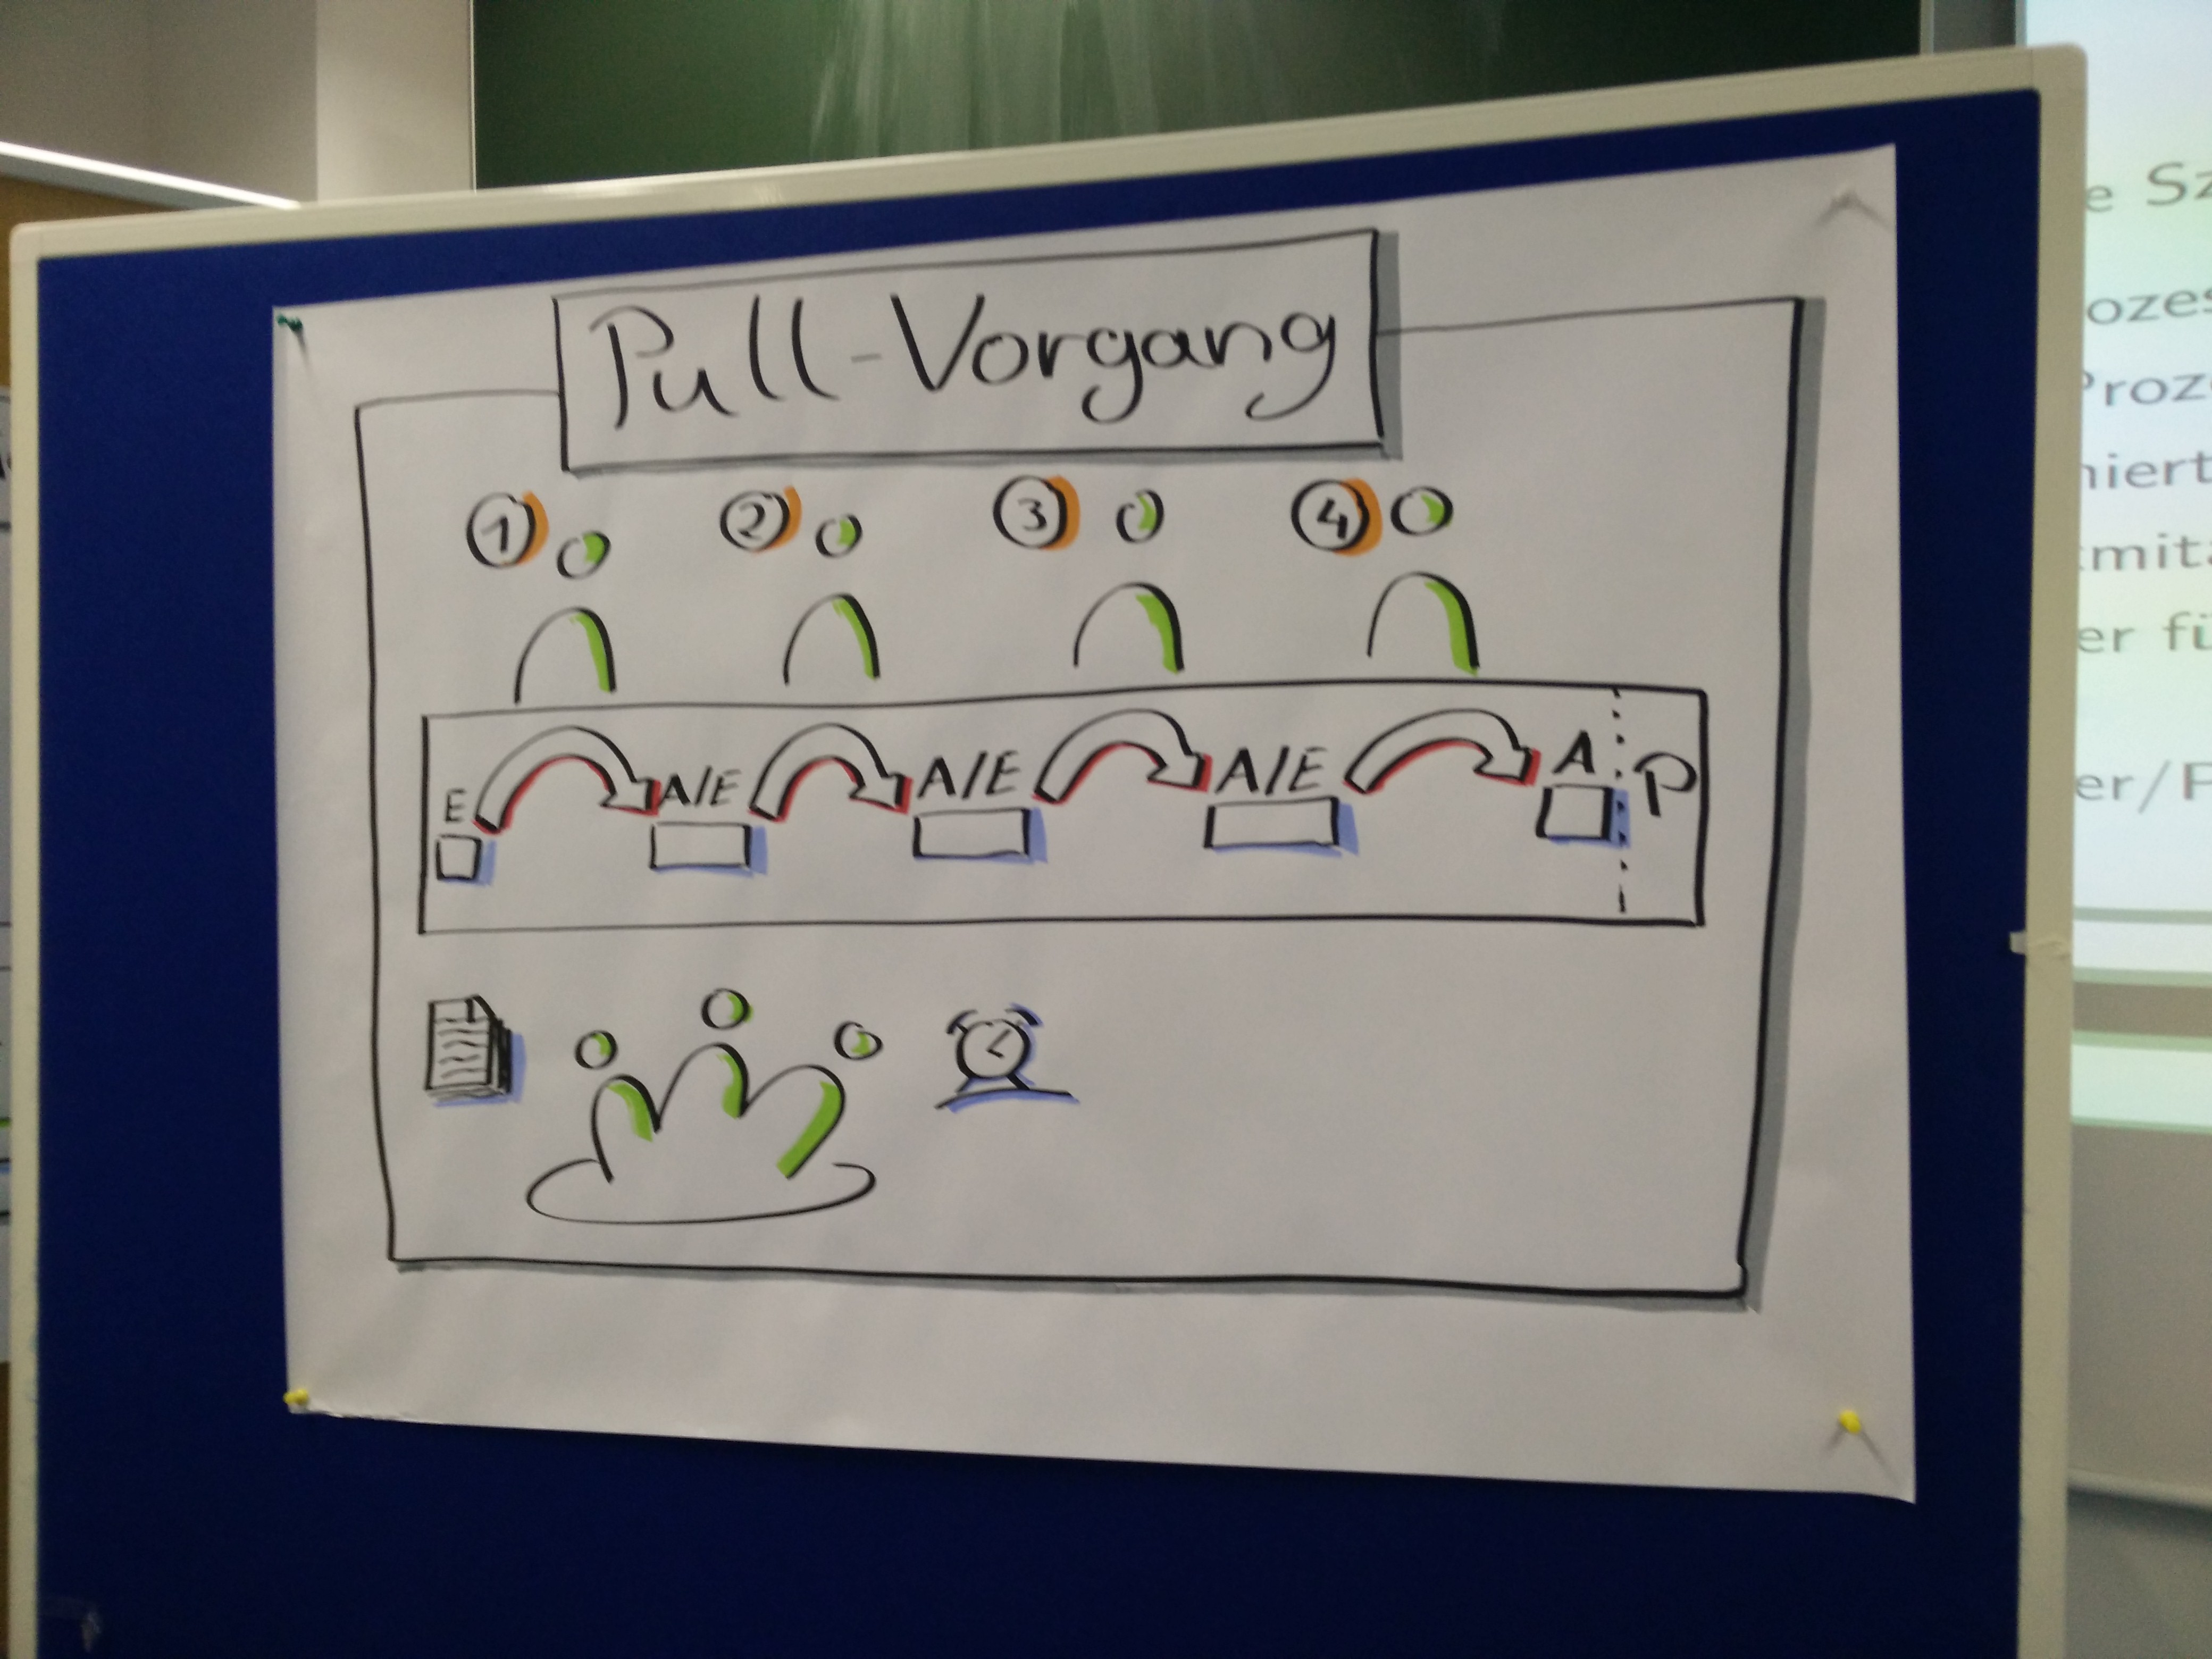 Pull-Vorgang
1 2 3 4
E A/E A/E A/E A P
e Sz
ozes
Proze
niert
kmita
er fü
er/F